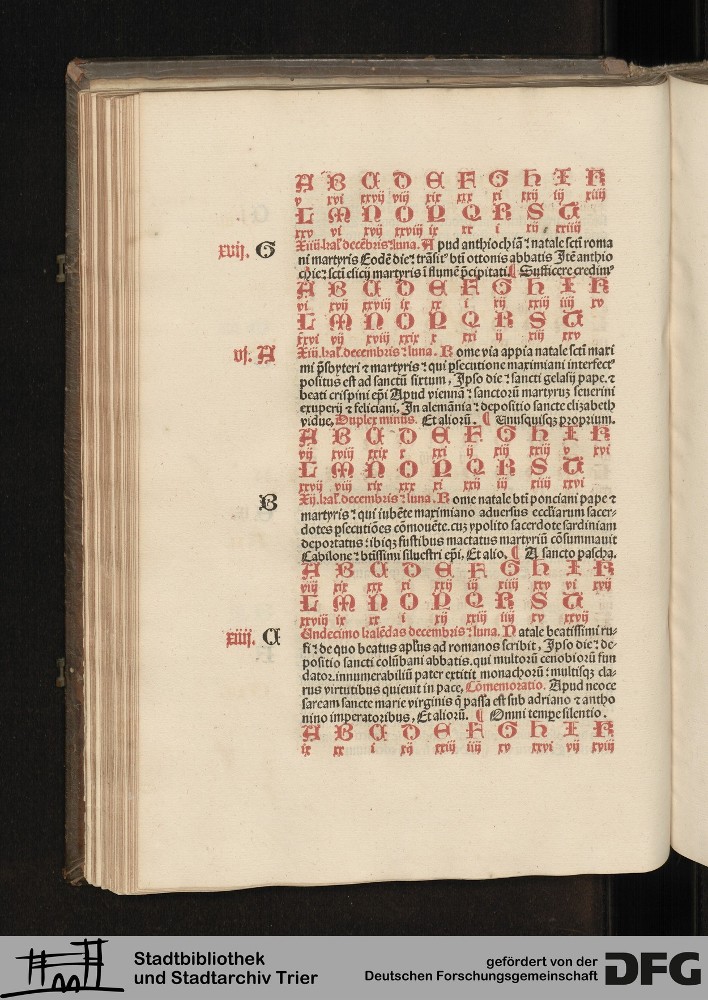 A B C D E F G H I K
v xvi xxvij viij xix xxx xi xxij iij xiiij
L M N O P Q R S T
xxv vi xvij xxviij ix xx i xij xxiiij
xvij. G Xiiij. kal. decēbris ⁊ luna. A pud anthiochiā ⁊ natale sctī roma
ni martyris Eodē die ⁊ trāsit⁹ btī ottonis abbatis Itē anthio
chie ⁊ sctī elicij martyris ī flumē p̄cipitati. ¶ Sufficere credim⁹
A B C D E F G H I K
vi xvij xxviij ix xx i xij xxiij iiij xv
L M N O P Q R S T
xxvi vij xviij xxix x xxi ij xiij xxv
vj. A Xiij. kal. decembris ⁊ luna. R ome via appia natale sctī maxi
mi p̄sbyteri ⁊ martyris ⁊ qui ꝑsecutione maximiani interfect⁹
positus est ad sanctū sixtum, Ipso die ⁊ sancti gelasij pape. ⁊
beati crispini ep̄i Apud viennā ⁊ sanctorū martyruꝫ seuerini
exuperij ⁊ feliciani, In alemānia ⁊ depositio sancte elizabeth
vidue, Duplex minus. Et aliorū. ¶ Unusquisqꝫ proprium.
A B C D E F G H I K
vij xviij xxix x xxi ij xiij xxiiij v xvi
L M N O P Q R S T
xxvij viij xix xxx xi xxij iij xiiij xxvi
B Xij. kal. decembris ⁊ luna. R ome natale btī ponciani pape ⁊
martyris ⁊ qui iubēte maximiano aduersus eccliarum sacer-
dotes ꝑsecutiōes cōmouēte. cuꝫ ypolito sacerdote sardiniam
deportatus ⁊ ibiqꝫ fustibus mactatus martyriū cōsummauit
Cabilone ⁊ btissimi siluestri ep̄i, Et alio. ¶ A sancto pascha.
A B C D E F G H I K
viij xix xxx xi xxij iij xiiij xxv vi xvij
L M N O P Q R S T
xxviij ix xx i xij xxiij iiij xv xxvij
xiiij. C Undecimo kalēdas decembris ⁊ luna. N atale beatissimi ru-
fi ⁊ de quo beatus apl̄us ad romanos scribit, Ipso die ⁊ de-
positio sancti colūbani abbatis. qui multorū cenobiorū fun
dator. innumerabiliū pater extitit monachorū ⁊ multisqꝫ cla-
rus virtutibus quieuit in pace, Cōmemoratio. Apud neoce
saream sancte marie virginis q̄ passa est sub adriano ⁊ antho
nino imperatoribus, Et aliorū. ¶ Omni tempe silentio.
A B C D E F G H I K
ix xx i xij xxiij iiij xv xxvi vij xviij
Stadtbibliothek
und Stadtarchiv Trier
gefördert von der
Deutschen Forschungsgemeinschaft
DFG